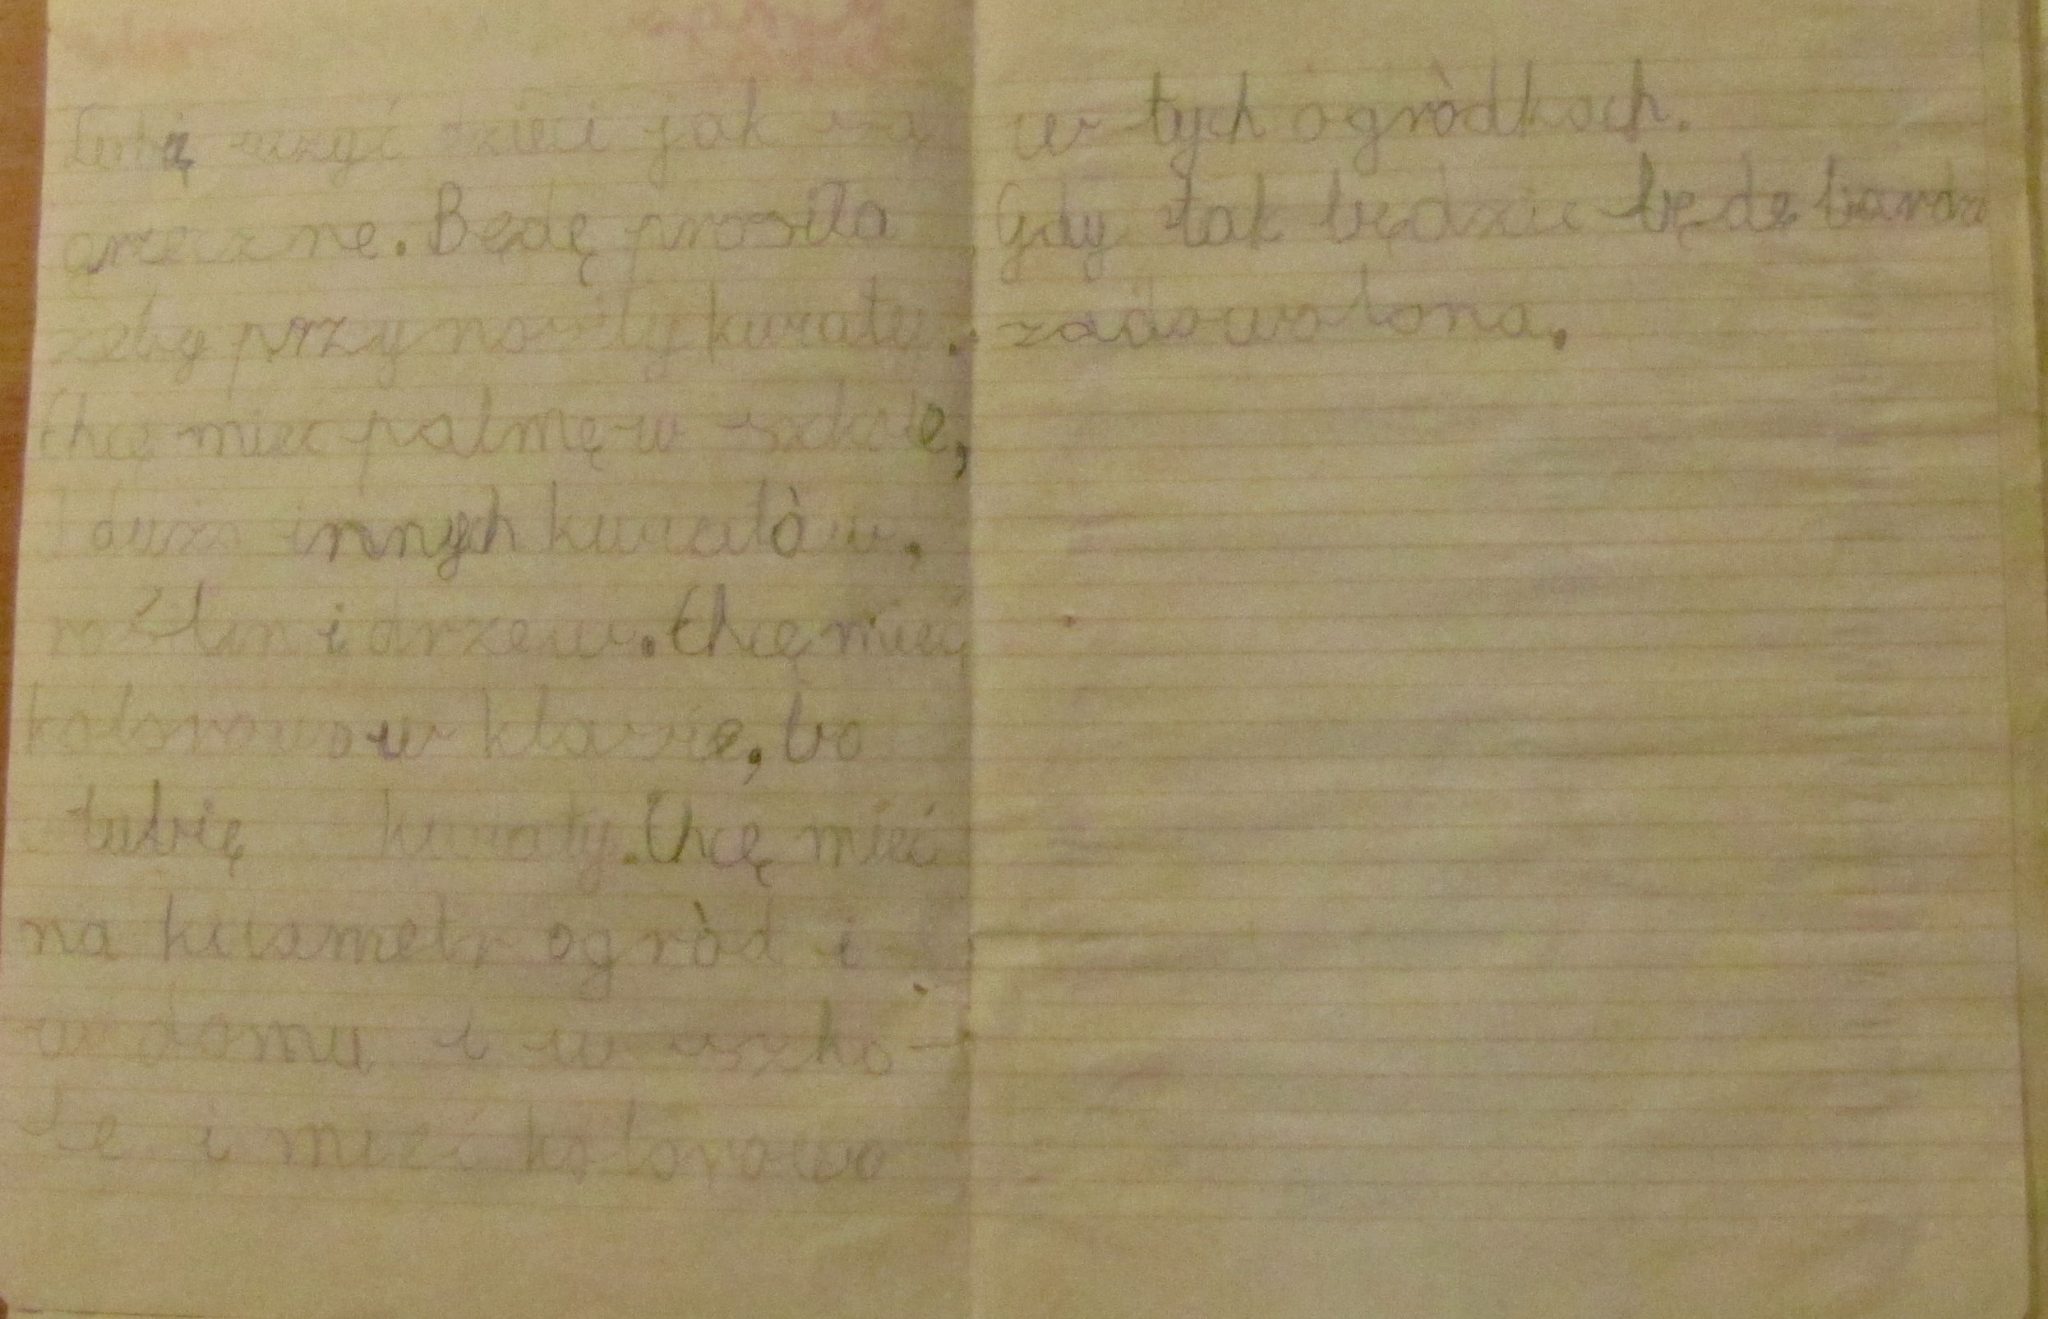 Lubię uczyć dzieci jak są
grzeczne. Będę prosiła
żeby przynosiły kwiaty.
Chcę mieć palmę w szkole,
I dużo innych kwiatòw,
roślin i drzew. Chcę mieć
kolorowo w klasie, bo
lubię kwiaty. Chcę mieć
na kilametr ogròd i
w domu i w szko-
le i mieć kolorowo
w tych ogròdkach.
Gdy tak będzie będę bardzo
zadowolona.